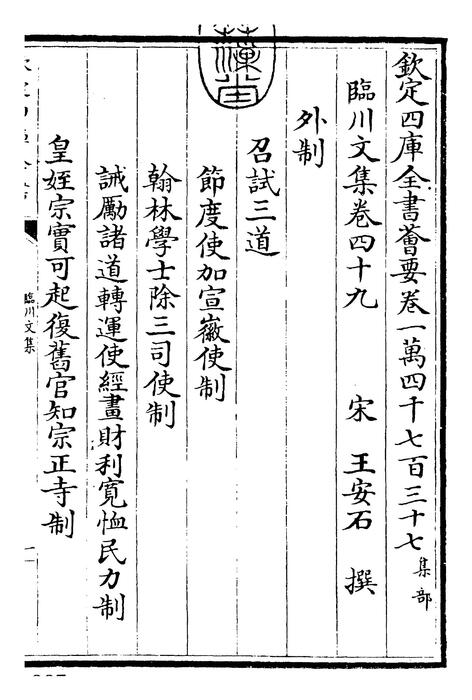 欽定四庫全書薈要卷一萬四千七百三十七 集部
臨川文集卷四十九 宋 王安石 撰
外制
召試三道
節度使加宣徽使制
翰林學士除三司使制
誡勵諸道轉運使經畫財利寬恤民力制
皇姪宗實可起復舊官知宗正寺制
臨川文集
一